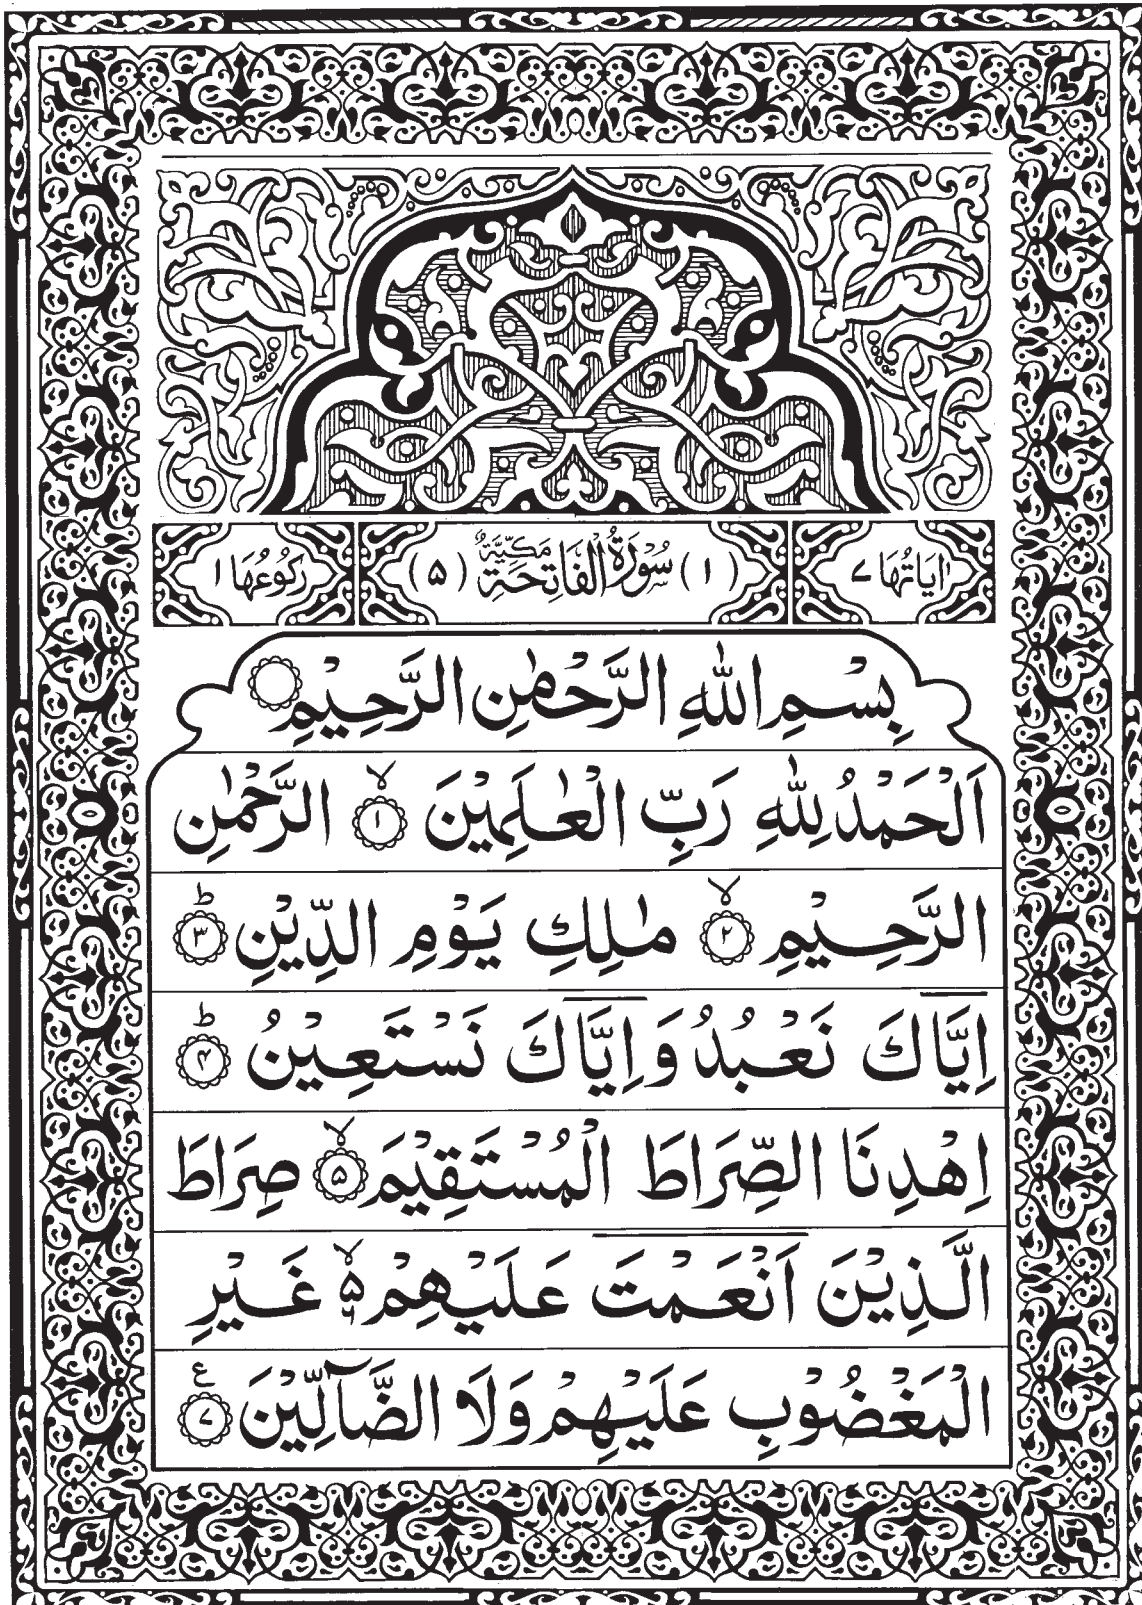 اٰيَاتُهَا ٧ (١) سُوْرَةُ الْفَاتِحَةِ مَكِّيَّةٌ (۵) رُكُوْعُهَا ١
بِسْمِ اللّٰهِ الرَّحْمٰنِ الرَّحِيْمِ ۝
اَلْحَمْدُ لِلّٰهِ رَبِّ الْعٰلَمِيْنَ ۙ ١ الرَّحْمٰنِ
الرَّحِيْمِ ۙ ٢ مٰلِكِ يَوْمِ الدِّيْنِ ؕ ٣
اِيَّاكَ نَعْبُدُ وَ اِيَّاكَ نَسْتَعِيْنُ ؕ ۴
اِهْدِنَا الصِّرَاطَ الْمُسْتَقِيْمَ ۙ ۵ صِرَاطَ
الَّذِيْنَ اَنْعَمْتَ عَلَيْهِمْ ۙ۵ غَيْرِ
الْمَغْضُوْبِ عَلَيْهِمْ وَلَا الضَّآلِّيْنَ ع ٧